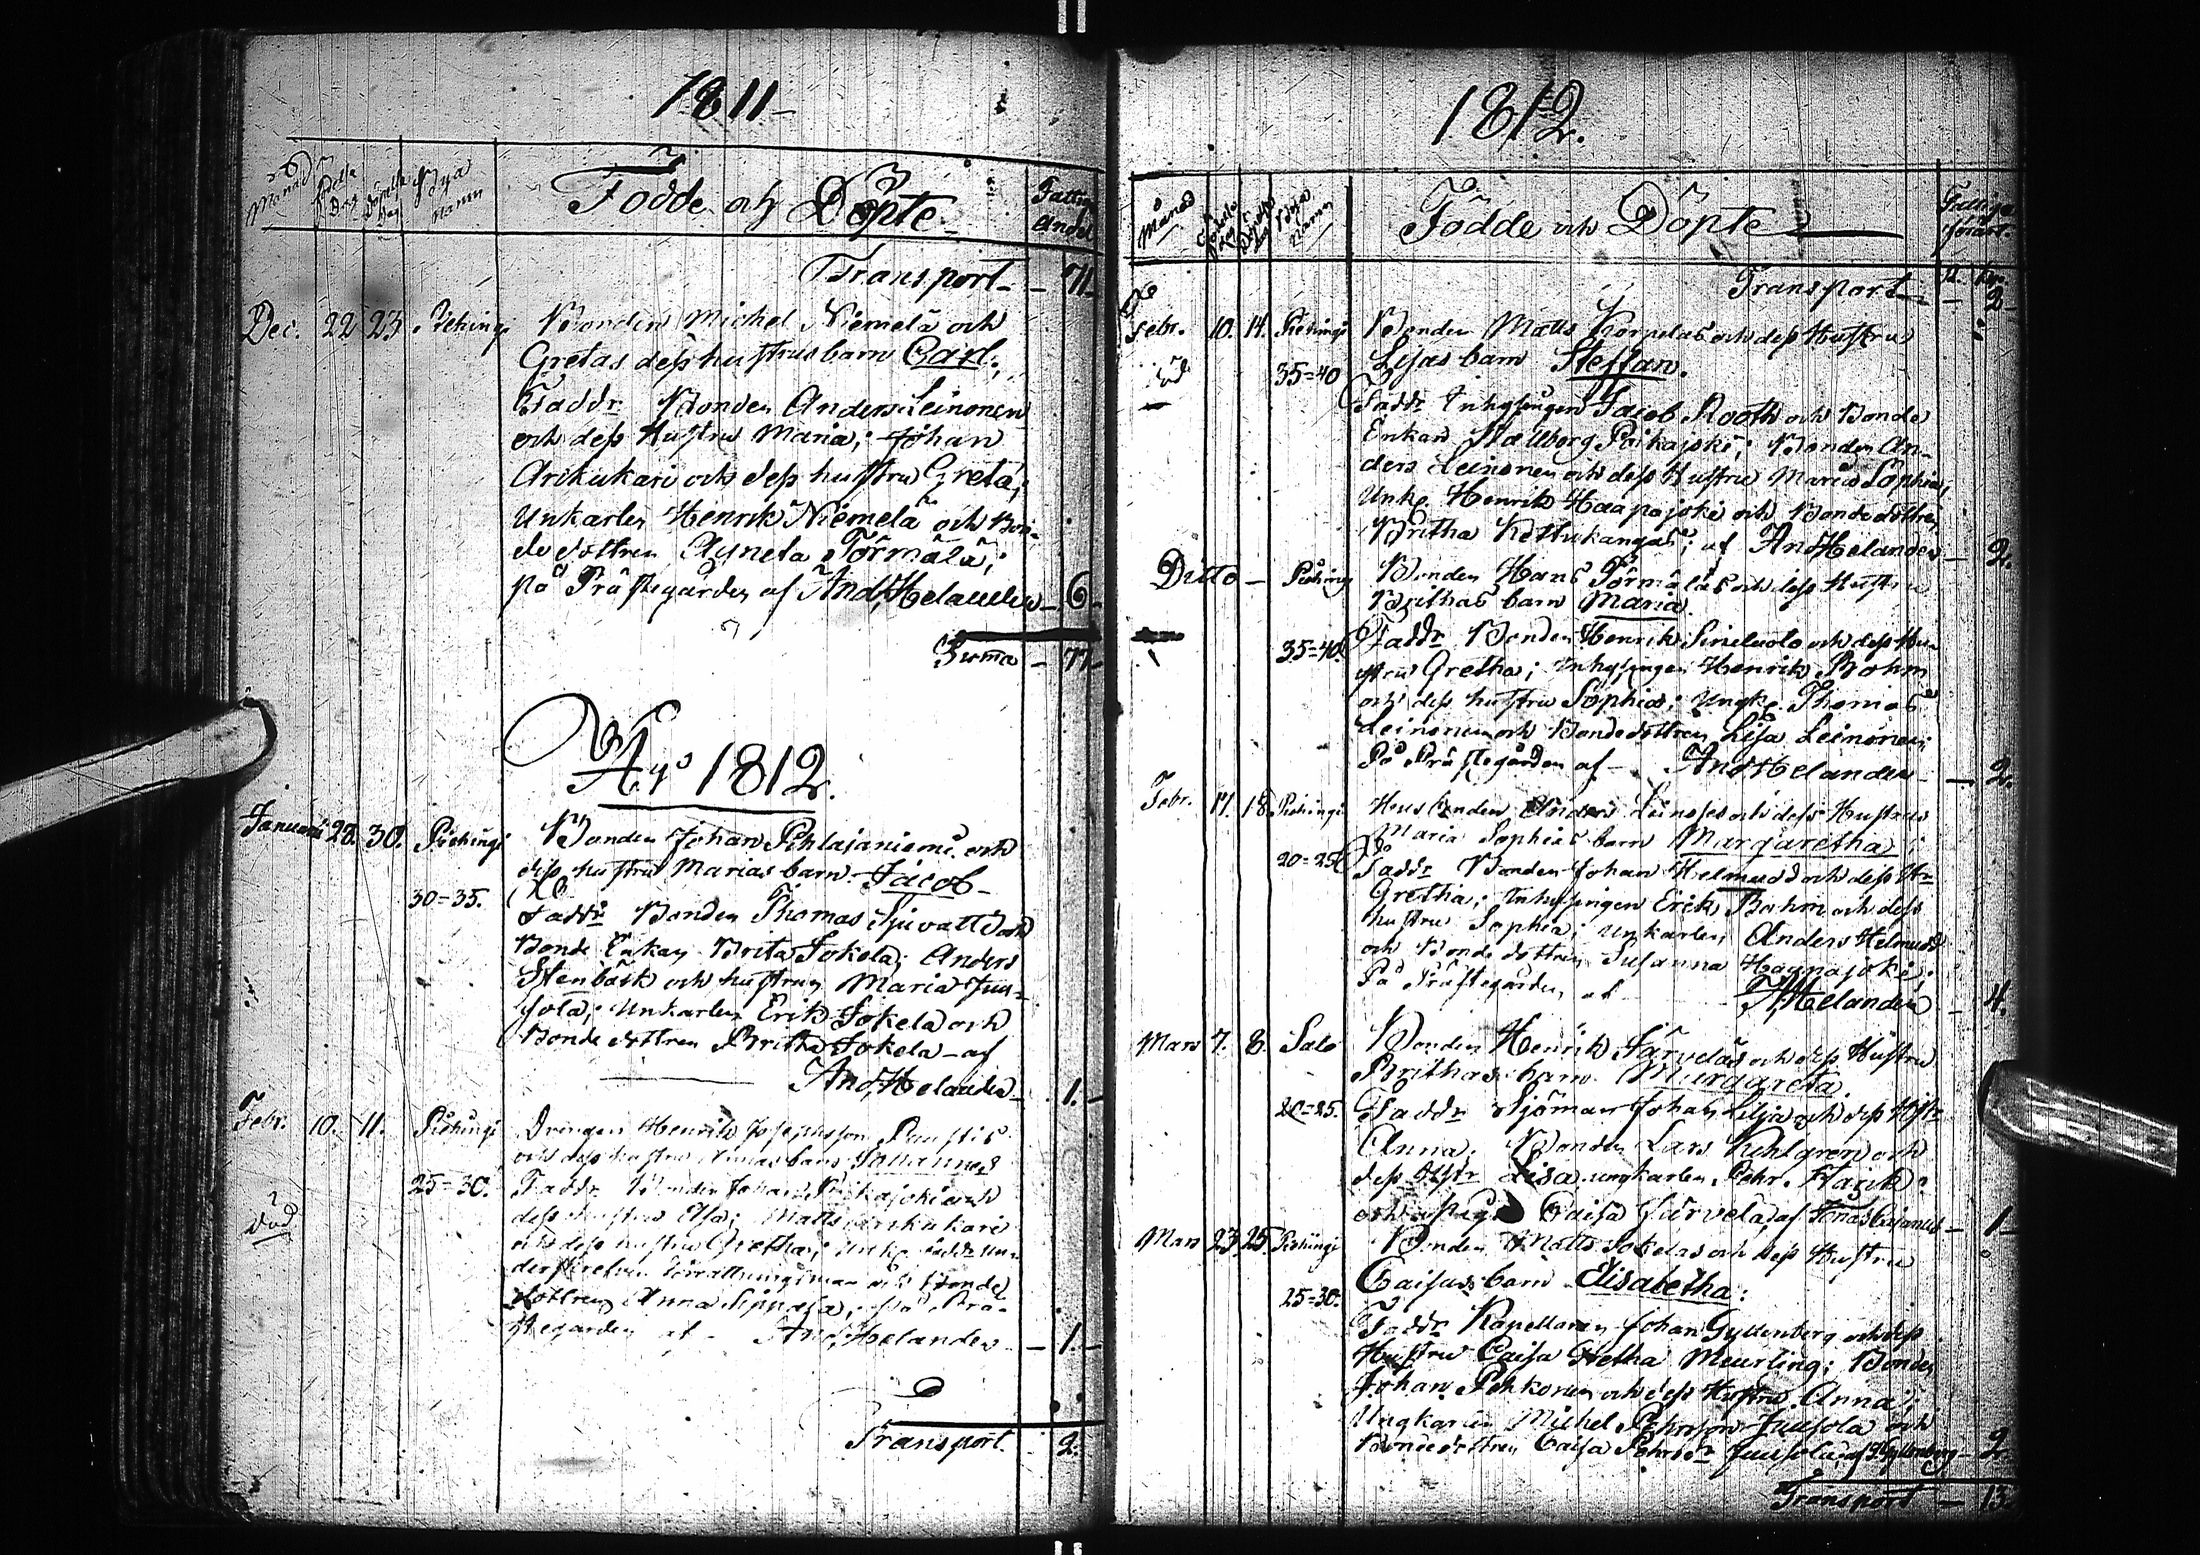 1811
Månad Födelse Dag Döpelse Dag Bya Namn Födde och Döpte Fattig Andel
Transport 71
Dec. 22 23 Piehingi Bonden Michel Niemelä och
Gretas dess hustrus barn Carl;
Faddr Bonden Anders Leinonen
och dess Hustru Maria; Johan
Arikukari och dess hustru Greta;
Unkarlen Henrik Niemelä och Bon-
de dottren Agneta Törmälä;
på Prästegården af And. Helander 6
Suma 77
Ao 1812.
Januari 28. 30. Piehingi Bonden Johan Pihlajaniemi och
dess hustru Marias barn Jacob
30=35.
Faddr Bonden Thomas och
Bonde Enkan Brita Jokela; Anders
Stenbäck och hustrun Maria Juu-
sola; Unkarlen Erik Jokela och
Bonde dottren Britha Jokela af
And. Helander 1.
Febr. 10. 11. Piehingi Drängen Henrik Josephsson
och dess hustrus barn Johannes
25=30. Faddr Bonden Johan Poikajoki och
död dess hustru Elsa; Matts Arikukari
och dess hustru Gretha; Unkr
och Bonde
dottren Anna; på Prä-
stegården af And. Helander 1.
Transport. 2.
1812.
Månad Födelse dag Döpelse dag Byars Namn Födde och Döpte
Transport 2
Febr. 10. 14. Piehingi Bonden Matts Korpelas och dess Hustrus
Lisas barn Steffan.
35=40
Faddr Inhysingen Jacob Rooth och Bonde
Enkan Wallborg Poikajoki; Bonden An-
ders Leinonen och dess Hustru Maria Sophia;
Unkr Henrik Haapajoki och Bonde dottren
Britha Kettukangas; af And Helander 2.
Ditto Piehingi Bonden Hans Törmälas och dess Hustru
Brithas barn Maria.
35=40. Faddr Bonden Henrik och dess Hu-
stru Gretha; Inhysingen Henrik Bohm
och dess hustru Sophia; Ungk. Thomas
Leinonen och Bondedottren Lisa Leinonen;
På Prästegården af And Helander 2.
Febr. 17. 18. Piehingi Husbonden Anders och dess Hustrus
Maria Sophias barn Margaretha;
20=25
Faddr Bonden Johan Helmudd och dess Hu
Gretha; Inhysingen Erik Bohm och dess
hustru Sophia; Unkarlen Anders Helmudd
och Bonde dottren Susanna Haapajoki;
På Prästegården af Helander 4.
Mars 7. 8. Salo Bonden Henrik Järveläs och dess Hustru
Brithas barn Margareta
20=25. Faddr Sjöman Johan Lilja och dess Hstr
Anna; Bonden Lars Kihlgren och
dess Hstr Lisa ungkarlen Pehr
och pigan Caisa Järvelä, af Jonas Cajanus 1
Mars 23 25 Piehingi Bonden Matts Jokelas och dess Hustru
Caisas barn Elisabetha:
25=30.
Faddr Kapellanen Johan Gyllenberg och dess
Hustru Caisa Gretha Meurling; Bonden
Johan Pehkonen och dess Hustru Anna;
Ungkarlen Michel Pehrsson Juusola och
Bondedottren Caisa Pehrsdr Juusola; af Gyllenberg 2
Transport 13